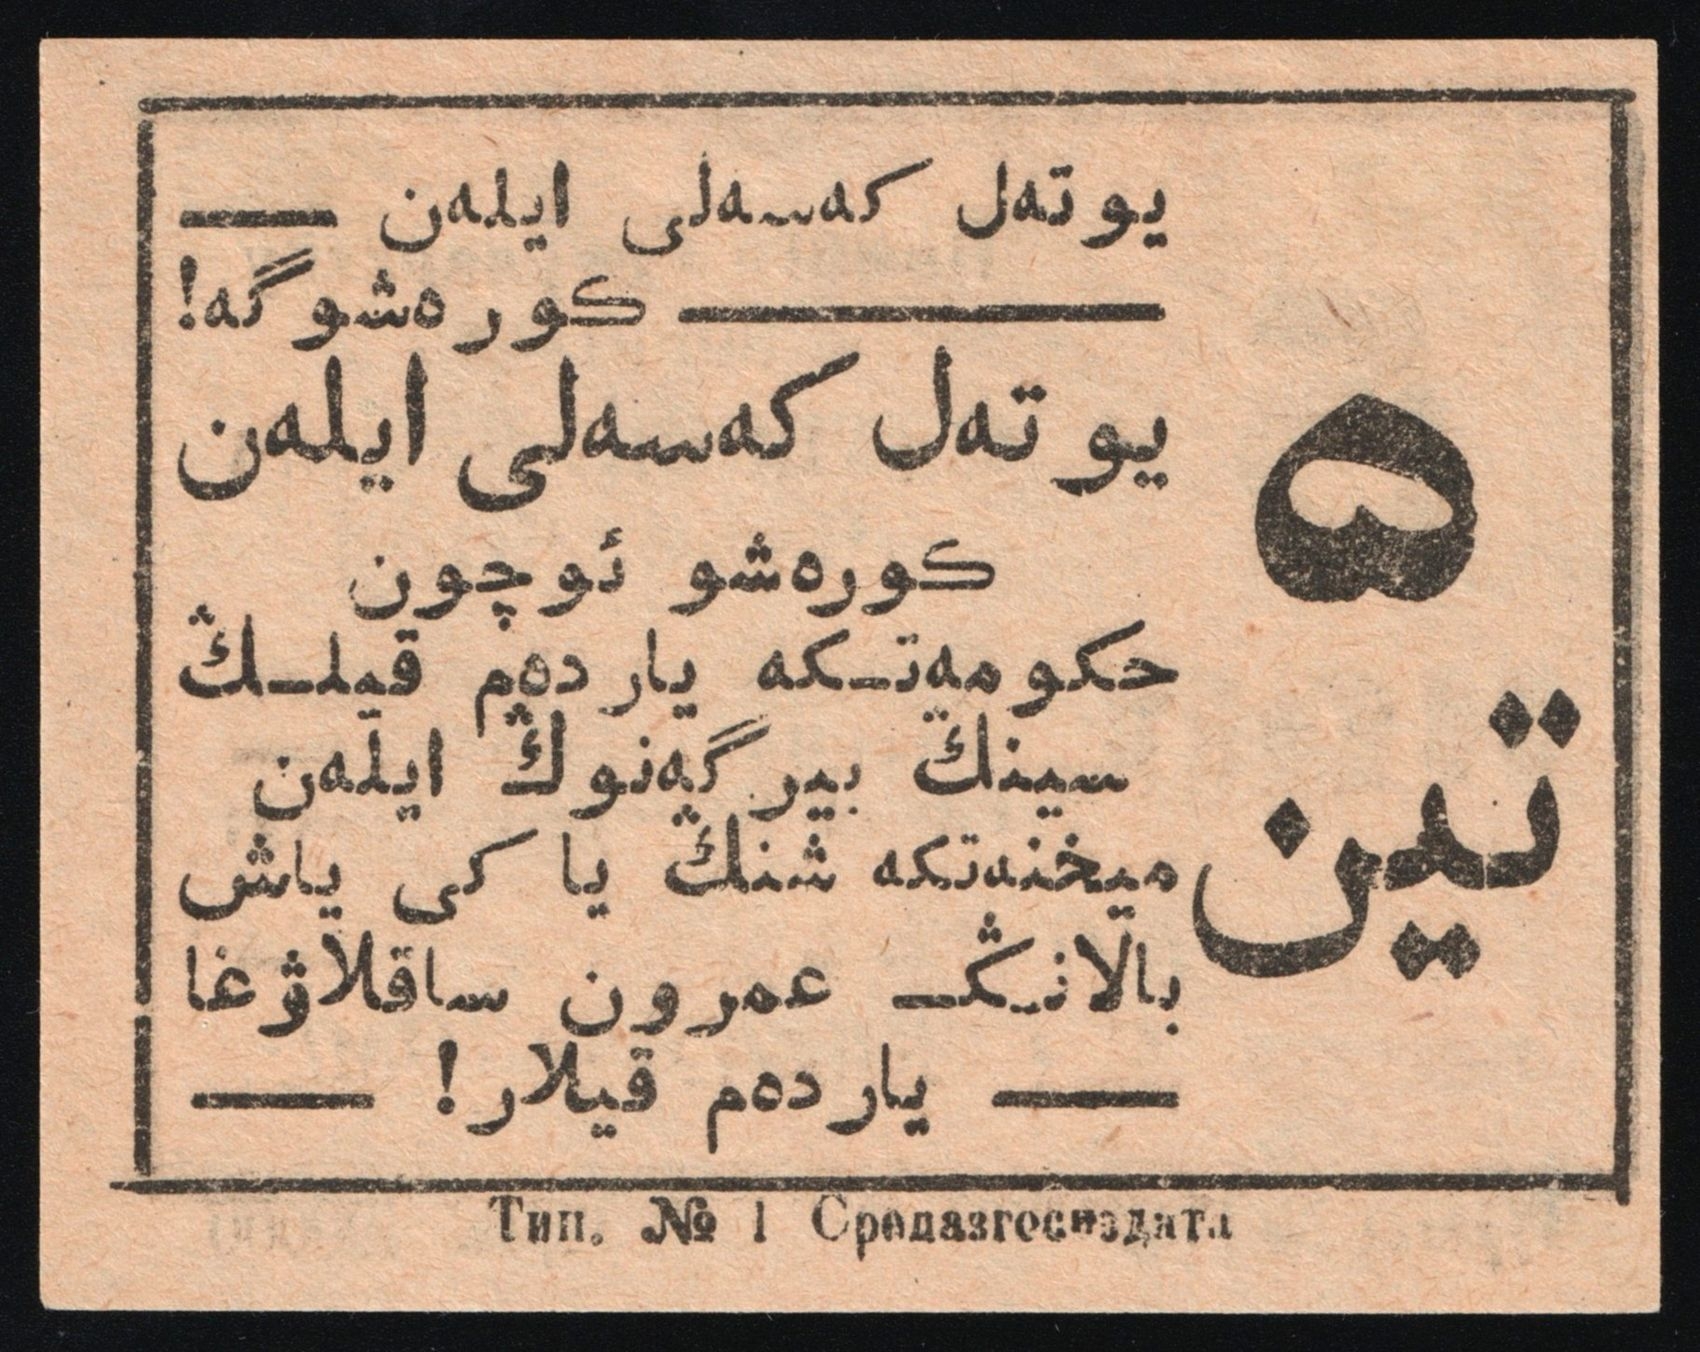 يوتەل كەسەلى ايلەن
كورەشوگە!
يوتەل كەسەلى ايلەن
كورەشو ئوچون
حكومەتـكە ياردەم قيلـڭ
سينڭ بيرگەنوڭ ايلەن
ميخنەتكە شنڭ يا كى ياش
بالانـڭ عمرون ساقلاۋغا
ياردەم قيلار!
۵
تين
Тип. № 1 Средазгосиздата